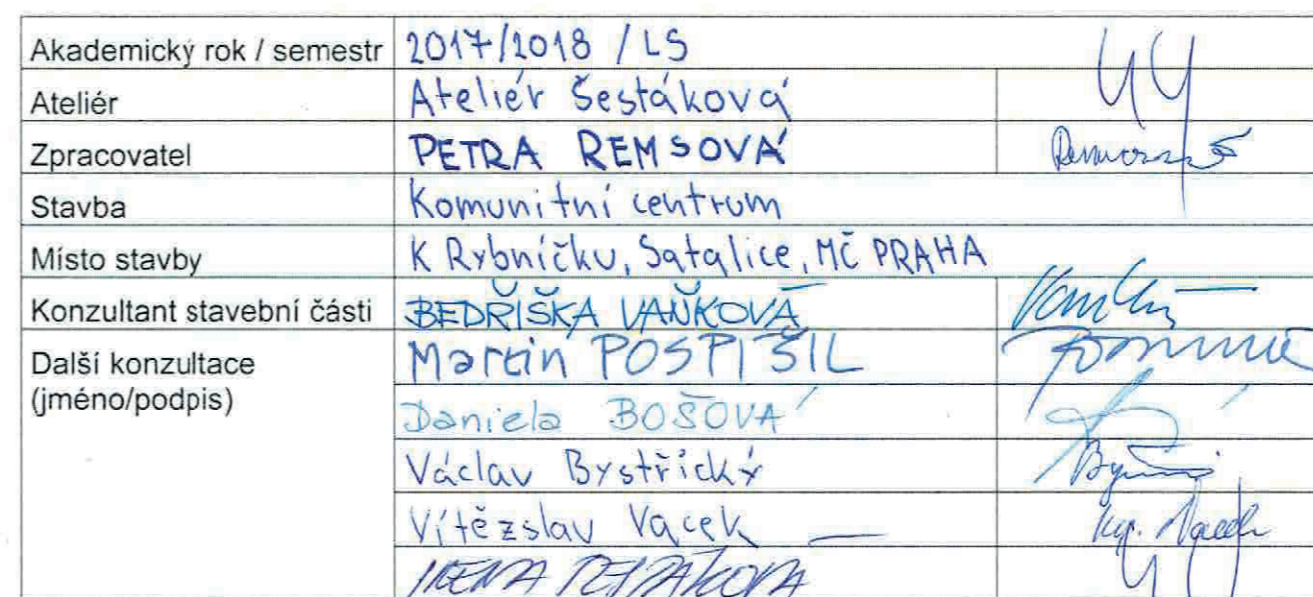 Akademický rok / semestr 2017/2018 / LS
Ateliér Ateliér Šestáková
Zpracovatel PETRA REMSOVÁ
Stavba Komunitní centrum
Místo stavby K Rybníčku, Satalice, MČ PRAHA
Konzultant stavební části BEDŘIŠKA VAŇKOVÁ
Další konzultace Martin POSPÍŠIL
(jméno/podpis)
Daniela BOŠOVÁ
Václav Bystřický
Vítězslav Vacek
IRENA ŠESTÁKOVÁ